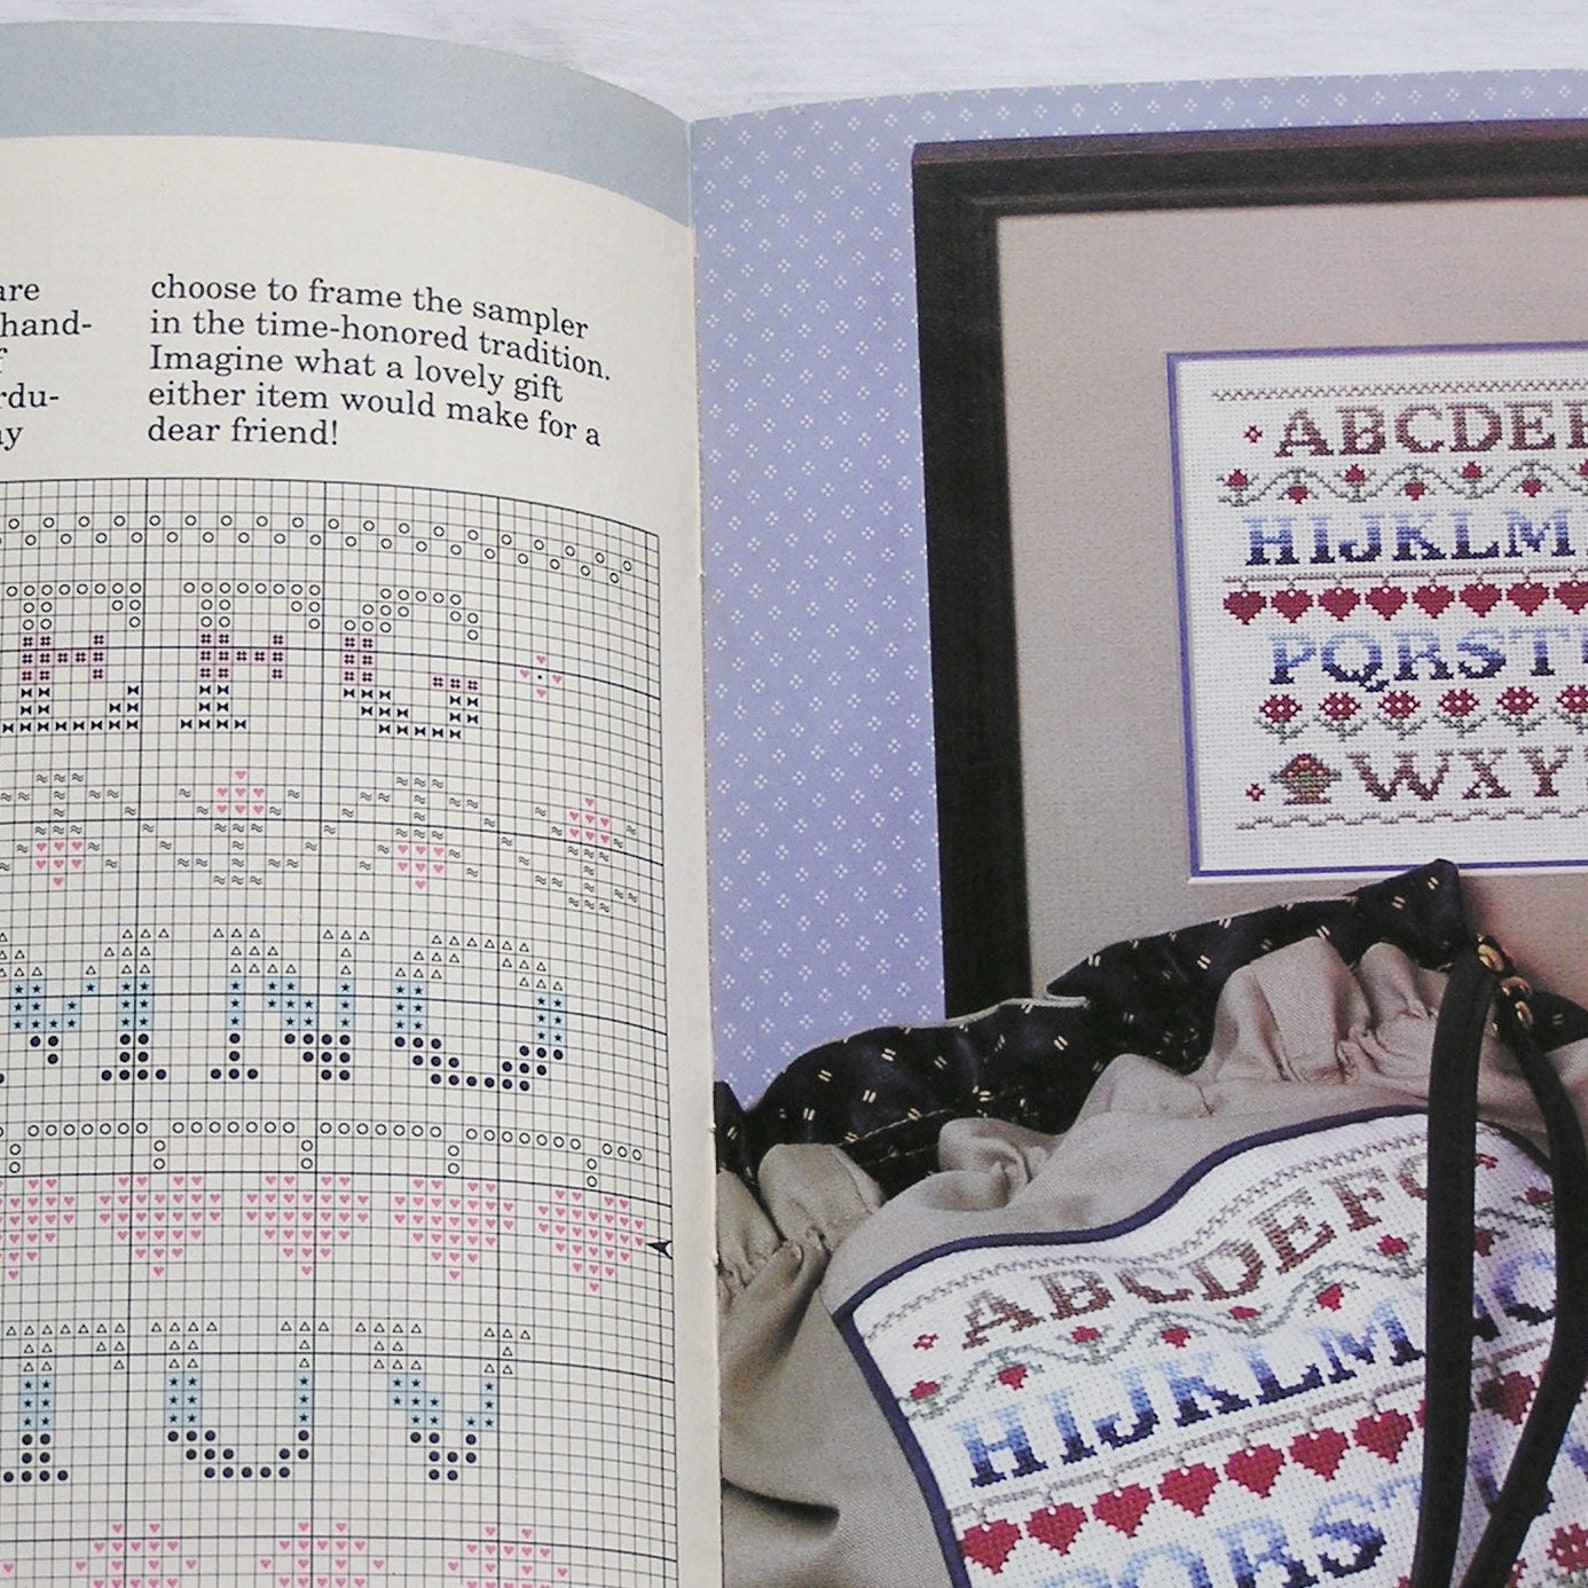 are
hand-
f
rdu-
ay
choose to frame the sampler
in the time-honored tradition.
Imagine what a lovely gift
either item would make for a
dear friend!
EFG
MNO
TUV
ABCDEF
HIJKLM
PQRST
WXY
ABCDEFG
HIJKLM
PQRST